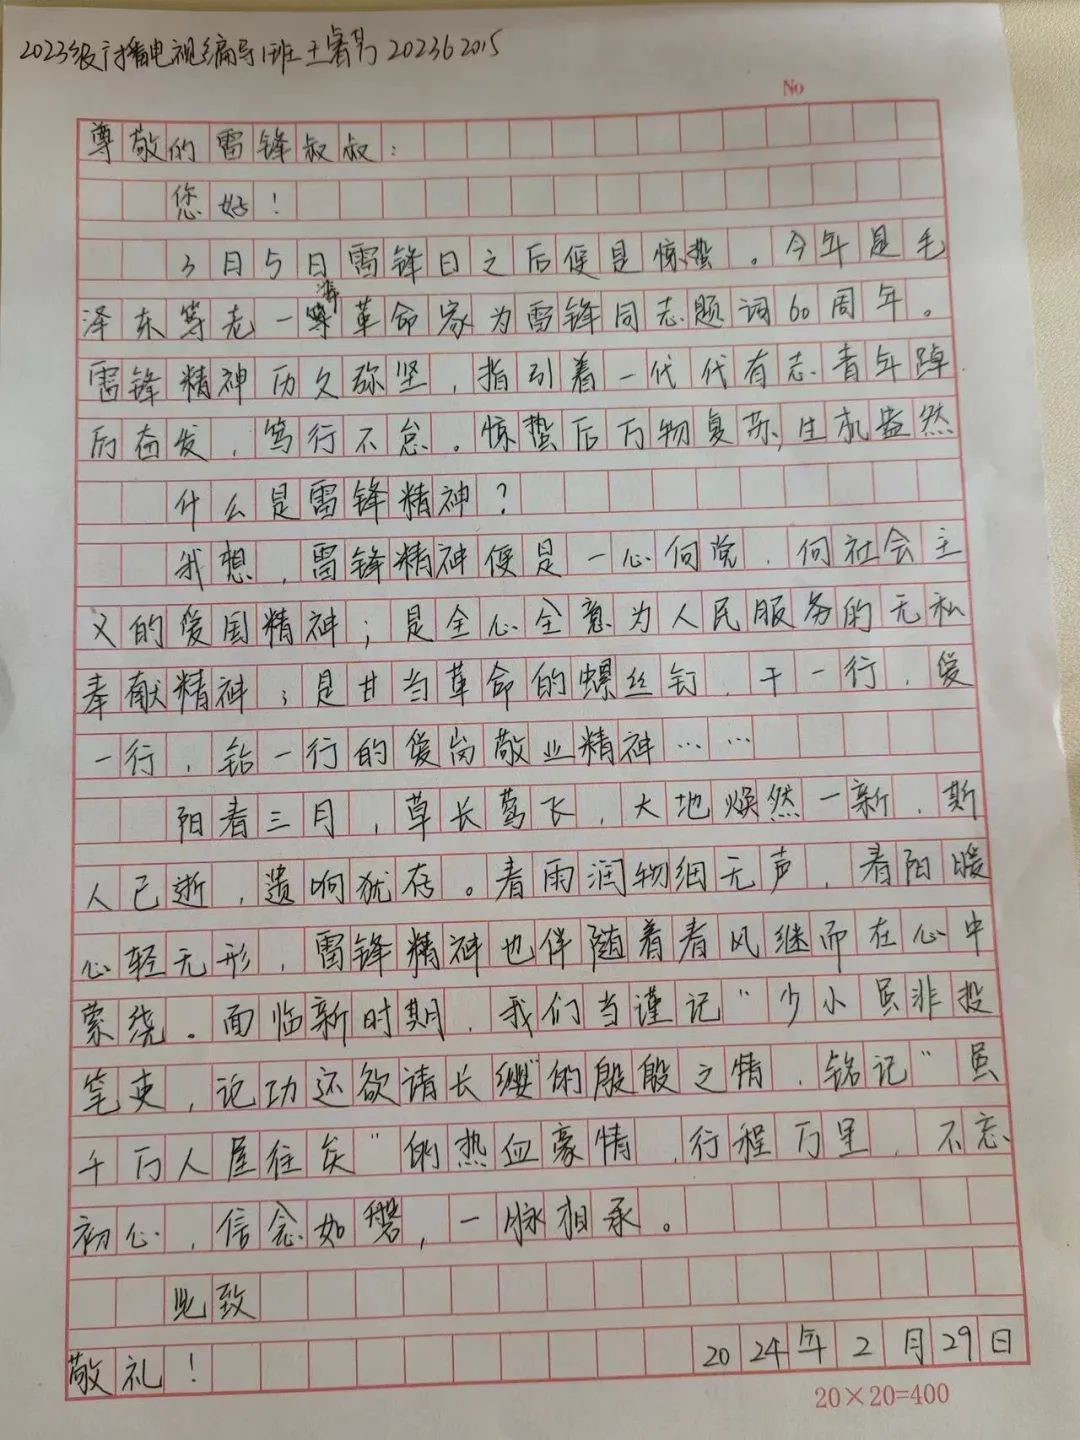 2023级广播电视编导1班 王 202362015
No
尊敬的雷锋叔叔：
您好！
3月5日雷锋日之后便是惊蛰。今年是毛
泽东等老一辈革命家为雷锋同志题词60周年。
雷锋精神历久弥坚，指引着一代代有志青年踔
厉奋发，笃行不怠。惊蛰后万物复苏，生机盎然
什么是雷锋精神？
我想，雷锋精神便是一心向党，向社会主
义的爱国精神；是全心全意为人民服务的无私
奉献精神；是甘当革命的螺丝钉，干一行，爱
一行，钻一行的爱岗敬业精神……
阳春三月，草长莺飞，大地焕然一新，斯
人已逝，遗响犹存。春雨润物细无声，春阳暖
心轻无形，雷锋精神也伴随着春风继而在心中
萦绕。面临新时期，我们当谨记“少小虽非投
笔吏，论功还欲请长缨”的殷殷之情，铭记“虽
千万人吾往矣”的热血豪情，行程万里，不忘
初心，信念如磐，一脉相承。
此致
敬礼！ 2024年2月29日
20×20=400